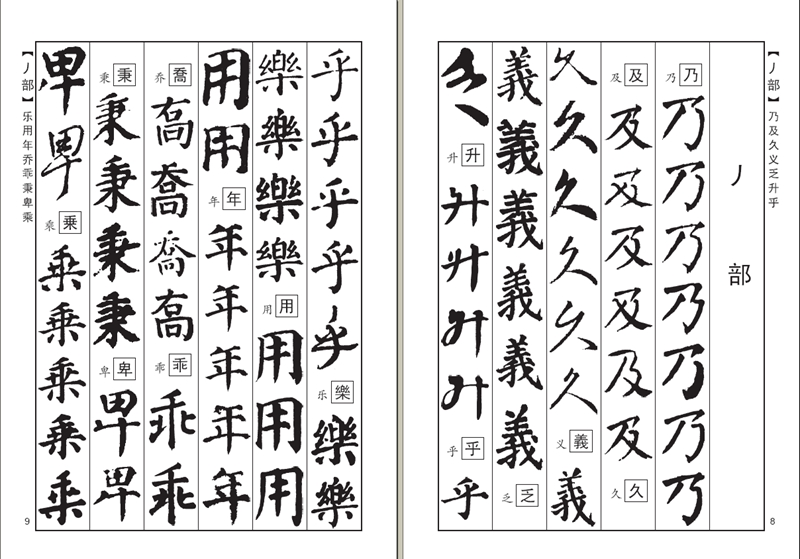 【丿部】乃及久义乏升乎
8
丿部
乃乃乃乃乃乃乃乃乃
及及及及及及及及久久
久久久久久久义義義
義義義義義義乏乏
乏升升升升升升乎乎乎
乎乎乎乎乎乐樂樂樂
樂樂樂樂用用用用用
用用年年年年年年年
乔喬喬喬喬喬乖乖乖乖
秉秉秉秉秉秉卑卑卑卑
卑卑乘乘乘乘乘乘乘
【丿部】乐用年乔乖秉卑乘
9